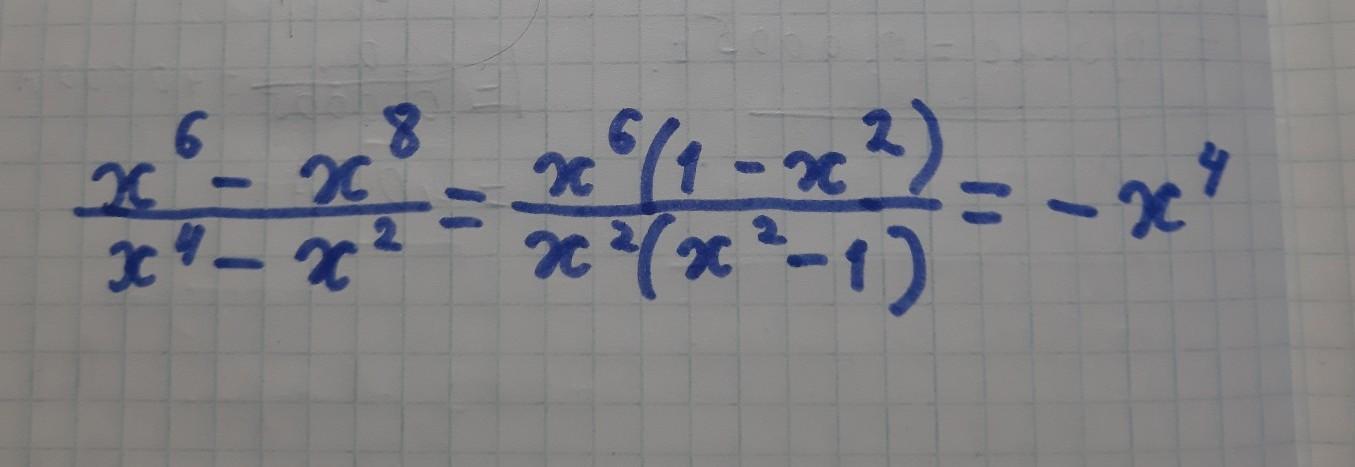 x⁶ - x⁸ / x⁴ - x² = x⁶(1 - x²) / x²(x² - 1) = - x⁴